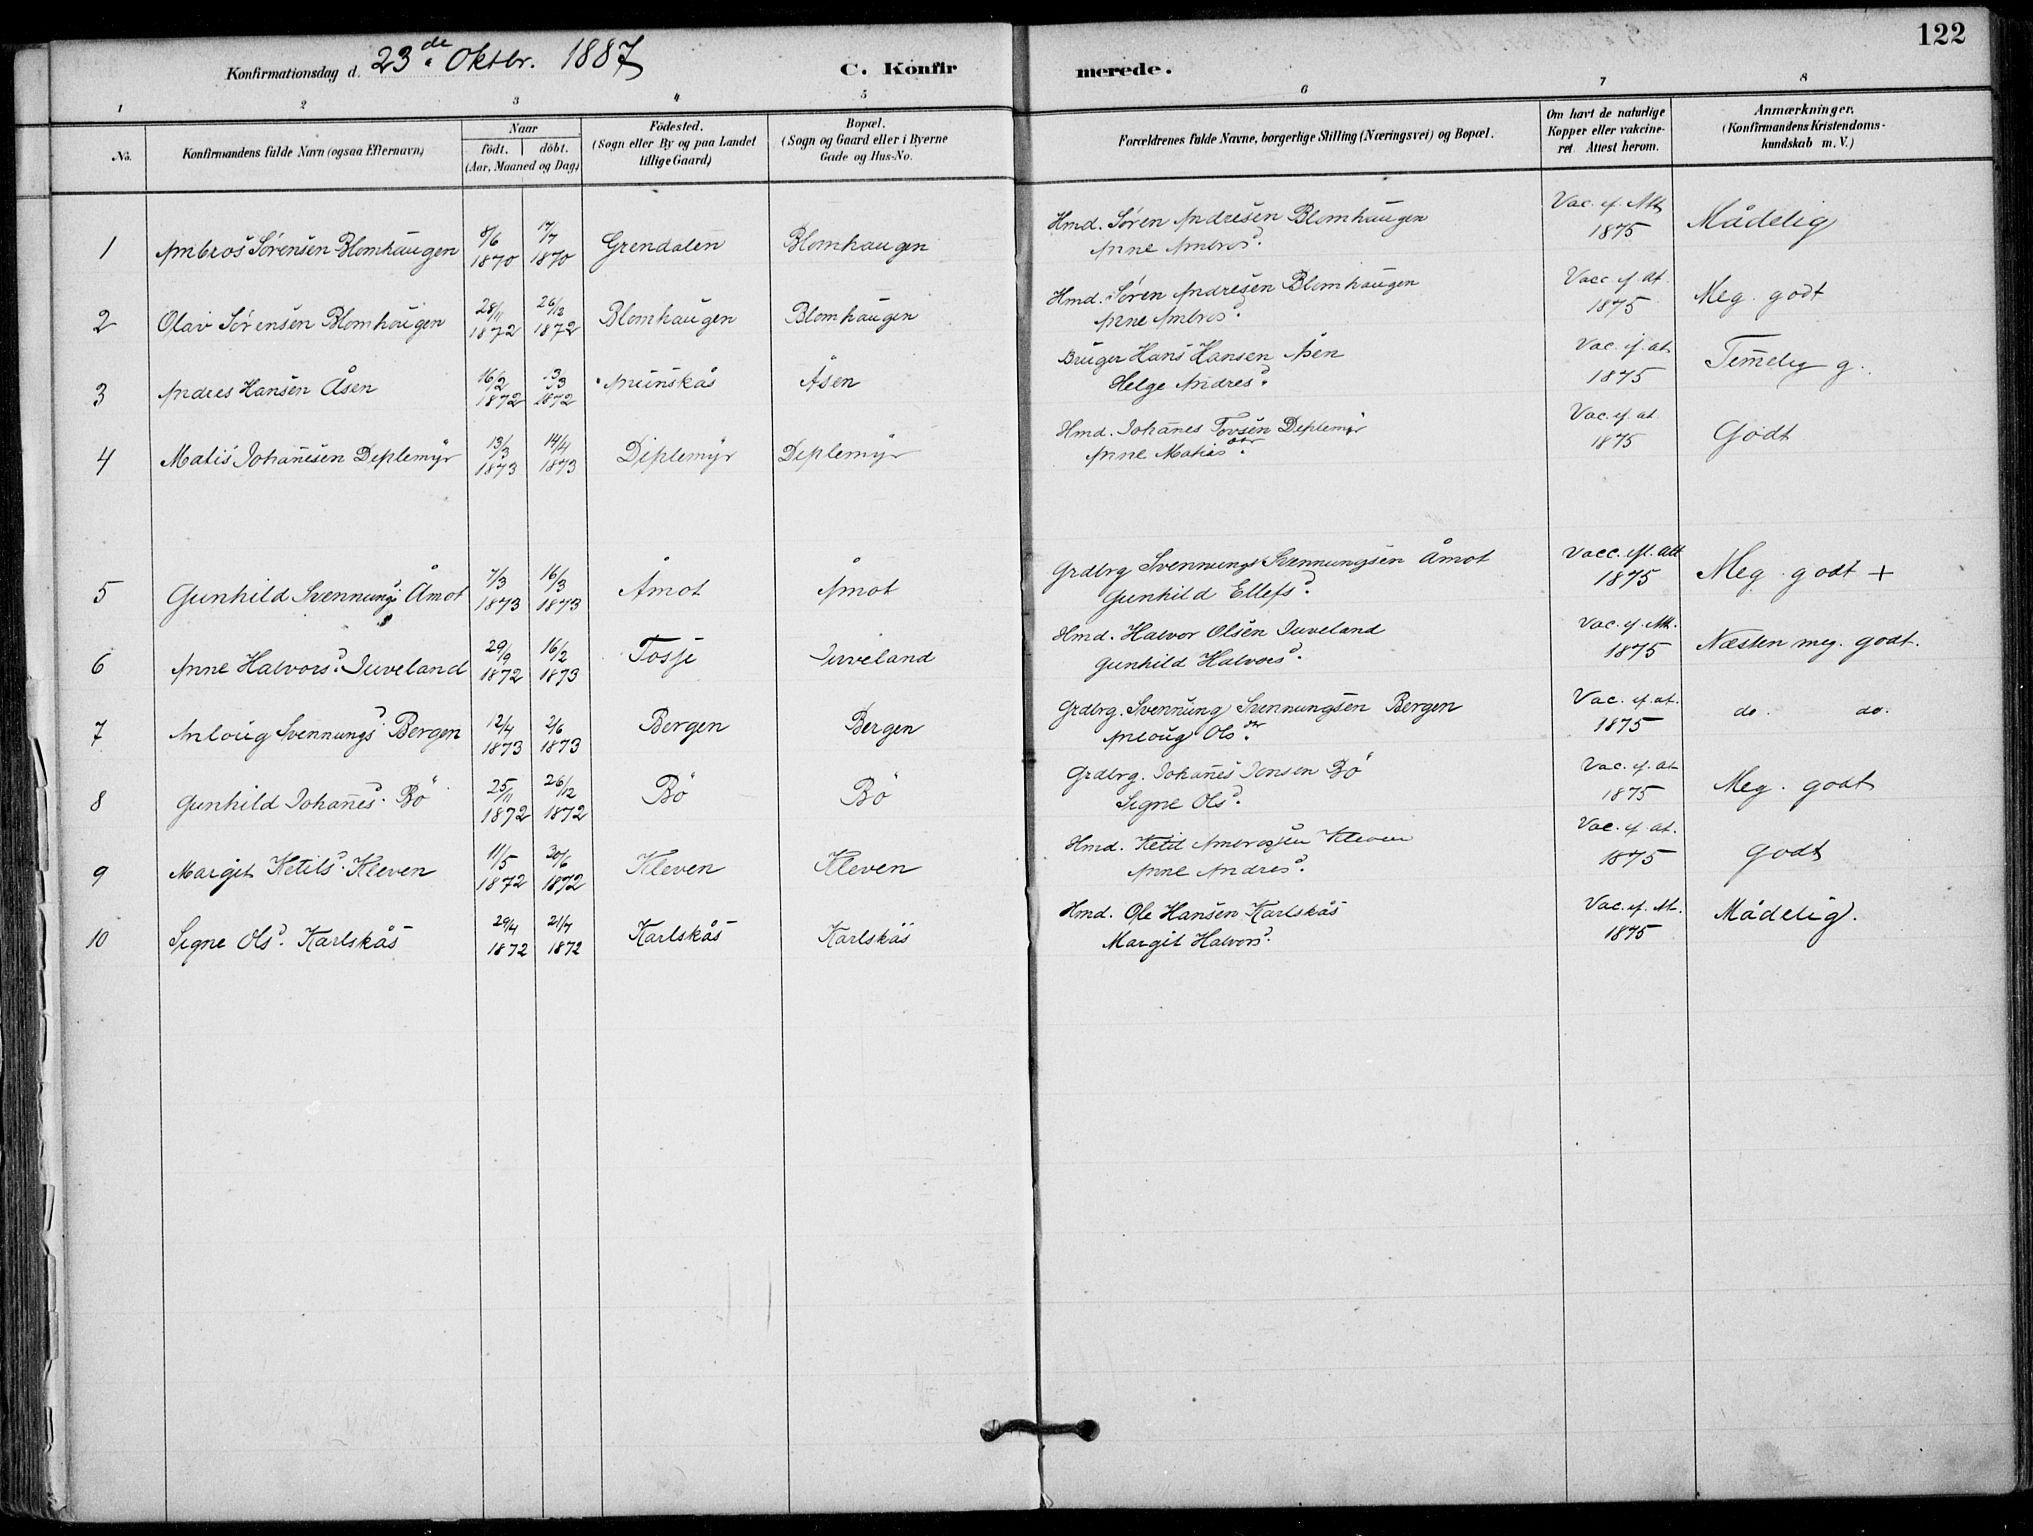 122
Konfirmationsdag d. 23de Oktbr. 1887
C. Konfirmerede.
1 2 3 4 5 6 7 8
No. Konfirmandens fulde Navn (ogsaa Efternavn) Naar födt. döbt. (Aar, Maaned og Dag) Födested. (Sogn eller By og paa Landet tillige Gaard) Bopæl. (Sogn og Gaard eller i Byerne Gade og Hus-No. Forældrenes fulde Navne, borgerlige Stilling (Næringsvei) og Bopæl. Om havt de naturlige Kopper eller vakcineret. Attest herom. Anmærkninger. (Konfirmandens Kristendomskundskab m. V.)
1 Ambros Sørensen Blomhaugen 8/6 1870 17/7 1870 Grendalen Blomhaugen Hmd. Søren Andresen Blomhaugen Vac. ef. Att. 1875 Mådelig
Anne Ambrosd.
2 Olav Sørensen Blomhaugen 28/11 1872 26/12 1872 Blomhaugen Blomhaugen Hmd. Søren Andresen Blomhaugen Vacc. ef. at. 1875 Meg. godt
Anne Ambrosd.
3 Andres Hansen Åsen 16/2 1872 3/3 1872 Åsen Bruger Hans Hansen Åsen Vac. ef. at. 1875 Temelig g.
Helge Andresd.
4 Matis Johannesen Deplemyr 13/3 1873 14/4 1873 Deplemyr Deplemyr Hmd. Johanes Tovsen Deplemyr Vac. ef. at. 1875 Godt
Anne Matisdtr.
5 Gunhild Svennungsd. Åmot 7/3 1873 16/3 1873 Åmot Åmot Grdbrg Svennung Svennungsen Åmot Vacc. ef. Att 1875 Meg. godt +
Gunhild Ellefsd.
6 Anne Halvorsd. Juveland 29/9 1872 16/2 1873 Tosje Juveland Hmd. Halvor Olsen Juveland Vac. ef. Att. 1875 Næsten meg. godt.
Gunhild Halvorsd.
7 Anloug Svennungsd. Bergen 12/4 1873 2/6 1873 Bergen Bergen Grdbrg. Svennung Svennungsen Bergen Vac. ef. at. 1875 do. do.
Anloug Olsdtr.
8 Gunhild Johannesd. Bö 25/11 1872 26/12 1872 Bö Bö Grdbrg. Johannes Jensen Bö Vac. ef. at. 1875 Meg. godt
Signe Olsd.
9 Margit Ketilsd. Kleven 11/5 1872 30/6 1872 Kleven Kleven Hmd. Ketil Ambrosen Kleven Vac. ef. at. 1875 Godt
Anne Andresd.
10 Signe Olsd. Karlskås 29/4 1872 21/7 1872 Karlskås Karlskås Hmd. Ole Hansen Karlskås Vac. ef. At. 1875 Mådelig.
Margit Halvorsd.